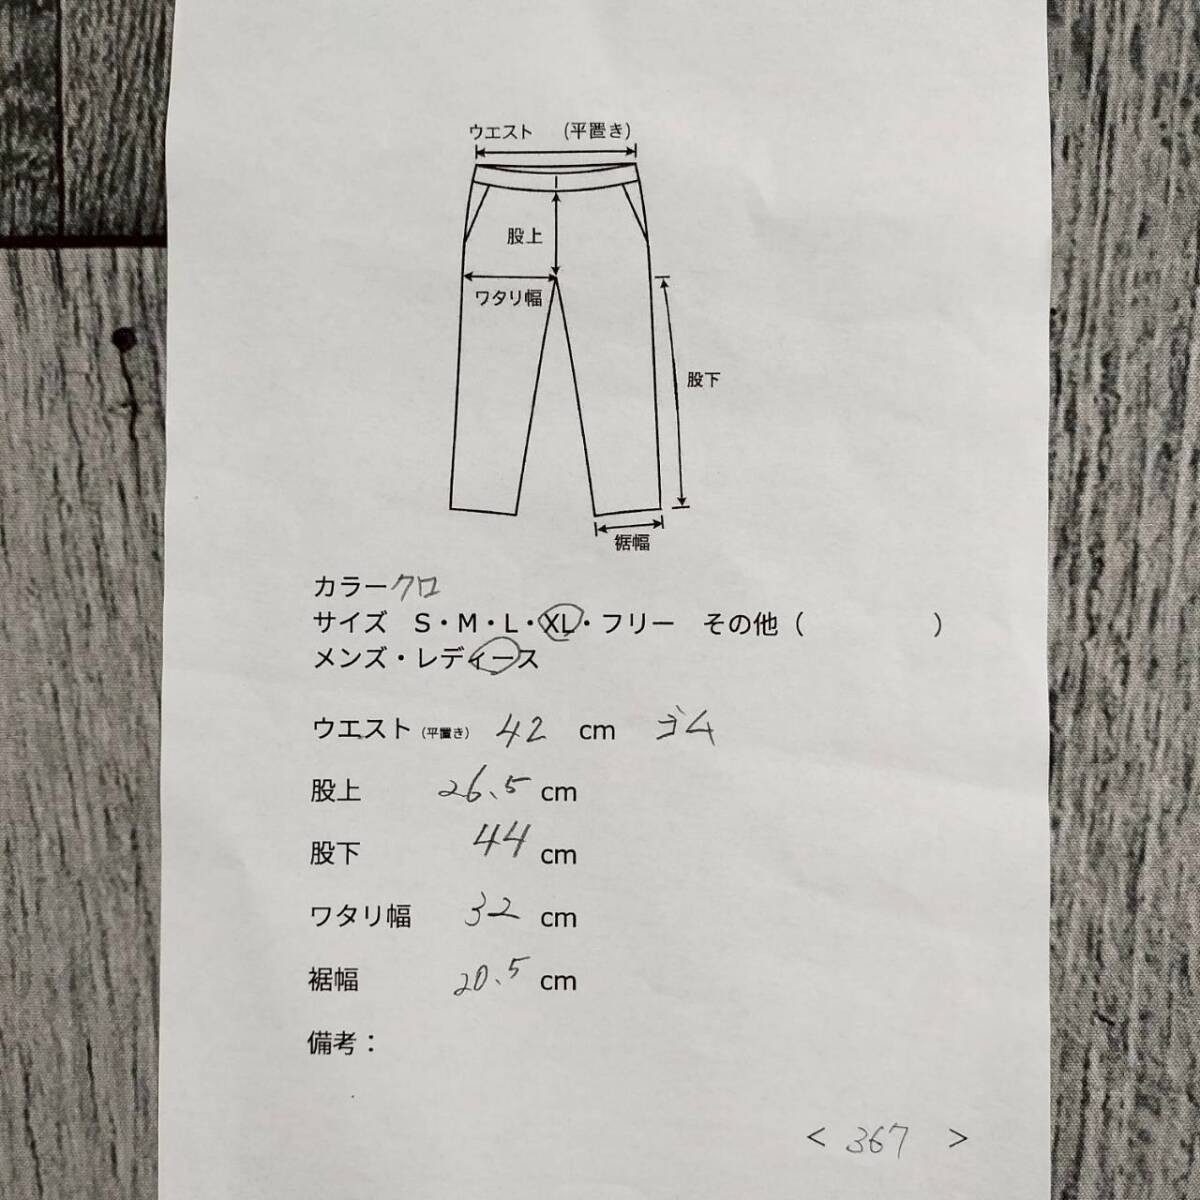 ウエスト (平置き)
股上
ワタリ幅
股下
裾幅
カラー クロ
サイズ S・M・L・XL・フリー その他 ( )
メンズ・レディース
ウエスト (平置き) 42 cm ゴム
股上 26.5 cm
股下 44 cm
ワタリ幅 32 cm
裾幅 20.5 cm
備考：
< 367 >